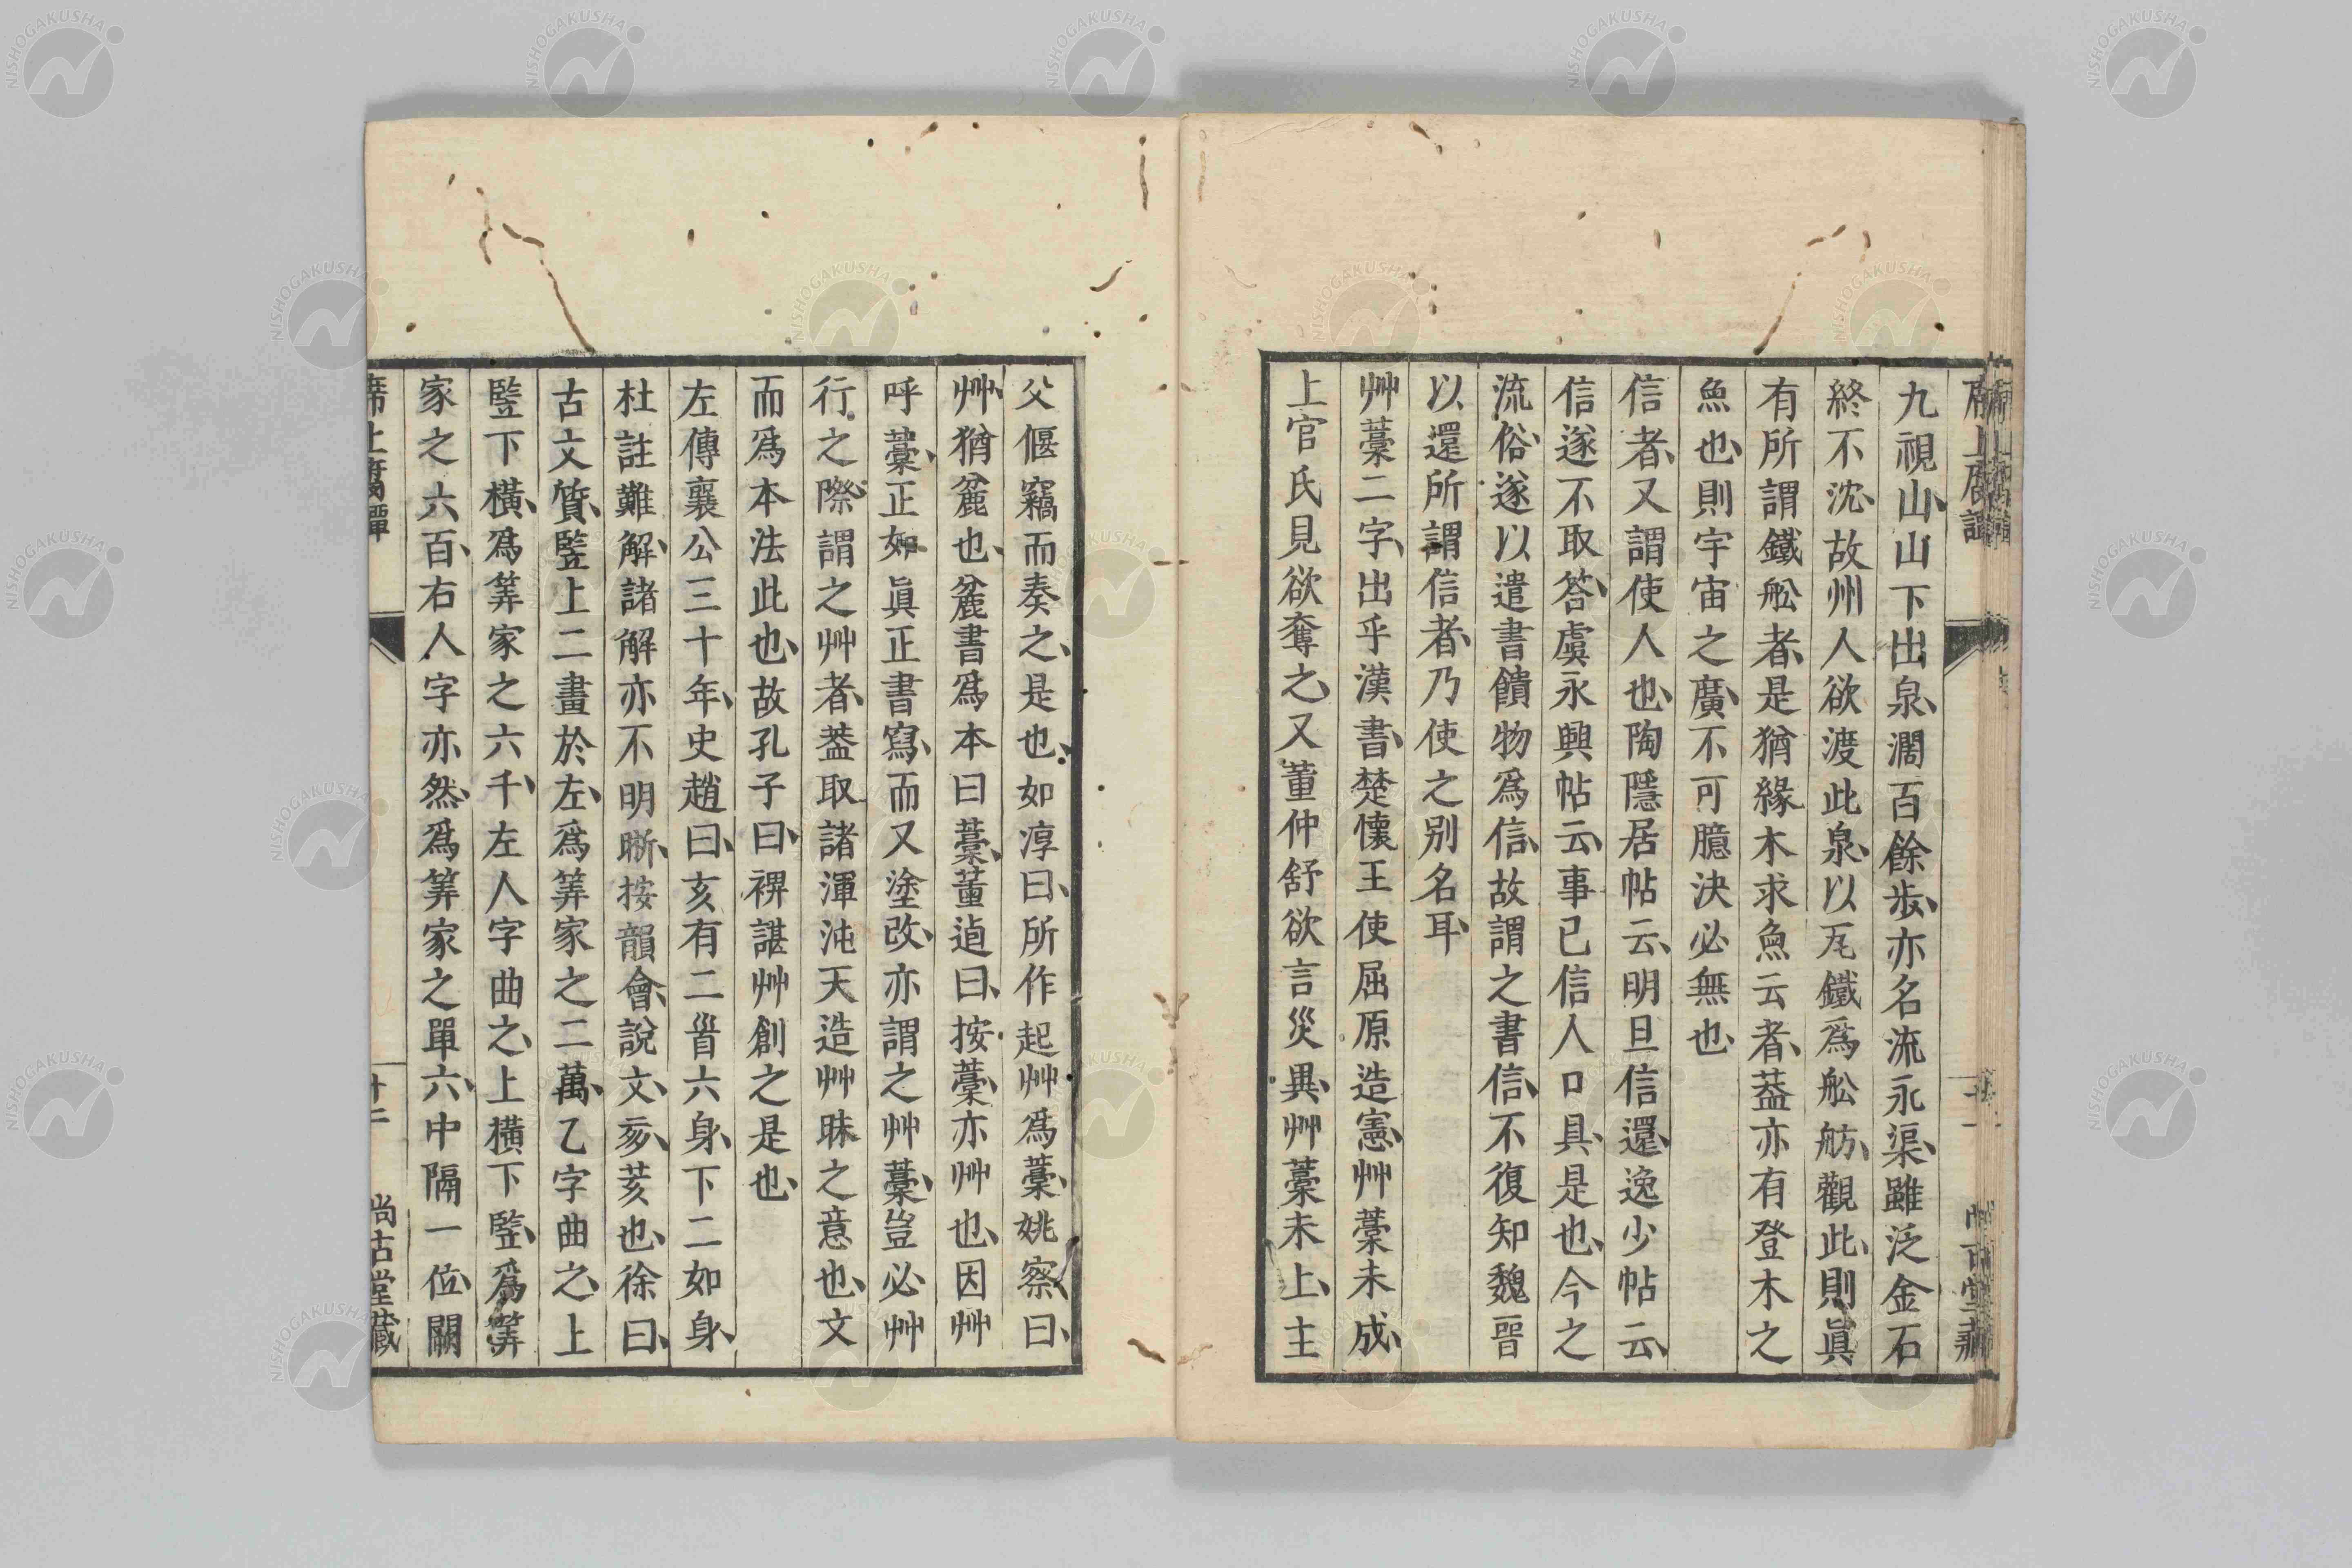 九視山、山下出泉、濶百餘歩、亦名流永渠、雖泛金石
終不沈、故州人欲渡此泉、以瓦鐵爲舩舫、觀此、則眞
有所謂鐵舩者、是猶緣木求魚云者、葢亦有登木之
魚也、則宇宙之廣、不可臆決必無也、
信者、又謂使人也、陶隱居帖云、明旦信還、逸少帖云、
信遂不取答、虞永興帖云、事已信人口具、是也、今之
流俗、遂以遣書饋物爲信、故謂之書信、不復知魏晉
以還所謂信者、乃使之別名耳、
艸藁二字、出乎漢書、楚懷王使屈原造憲、艸藁未成、
上官氏見欲奪之、又董仲舒欲言災異、艸藁未上、主
父偃竊而奏之、是也、如淳曰、所作起艸爲藁、姚察曰、
艸、猶麄也、麄書爲本曰藁、董逌曰、按藁、亦艸也、因艸
呼藁、正如眞正書寫、而又塗改、亦謂之艸藁、豈必艸
行之際、謂之艸者、葢取諸渾沌天造艸昧之意也、文
而爲本法此也、故孔子曰、裨諶艸創之是也、
左傳襄公三十年、史趙曰、亥有二首六身、下二如身、
杜註難解、諸解亦不明晣、按韻會、說文、亥、荄也、徐曰、
古文質、豎上二畫於左、爲筭家之二萬、乙字曲之、上
豎下橫、爲筭家之六千、左人字曲之、上橫下豎、爲筭
家之六百、右人字亦然、爲筭家之單六、中隔一位、關
席上腐譚
十二
尚古堂藏